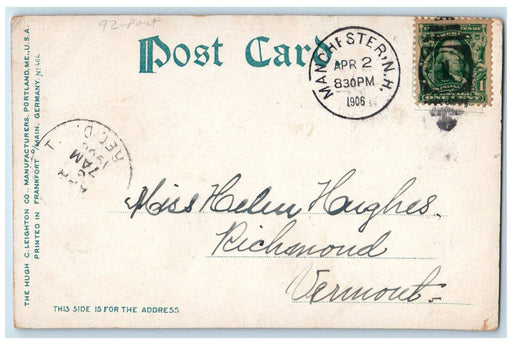 92-post
Post Card
MANCHESTER, N.H.
APR 2
830PM
1906
1
ONE CENT
APR
7AM
REC'D.
Miss Helen Hughes.
Richmond
Vermont
THIS SIDE IS FOR THE ADDRESS
THE HUGH C. LEIGHTON CO., MANUFACTURERS, PORTLAND, ME., U.S.A.
PRINTED IN FRANKFORT o/MAIN, GERMANY. No 464